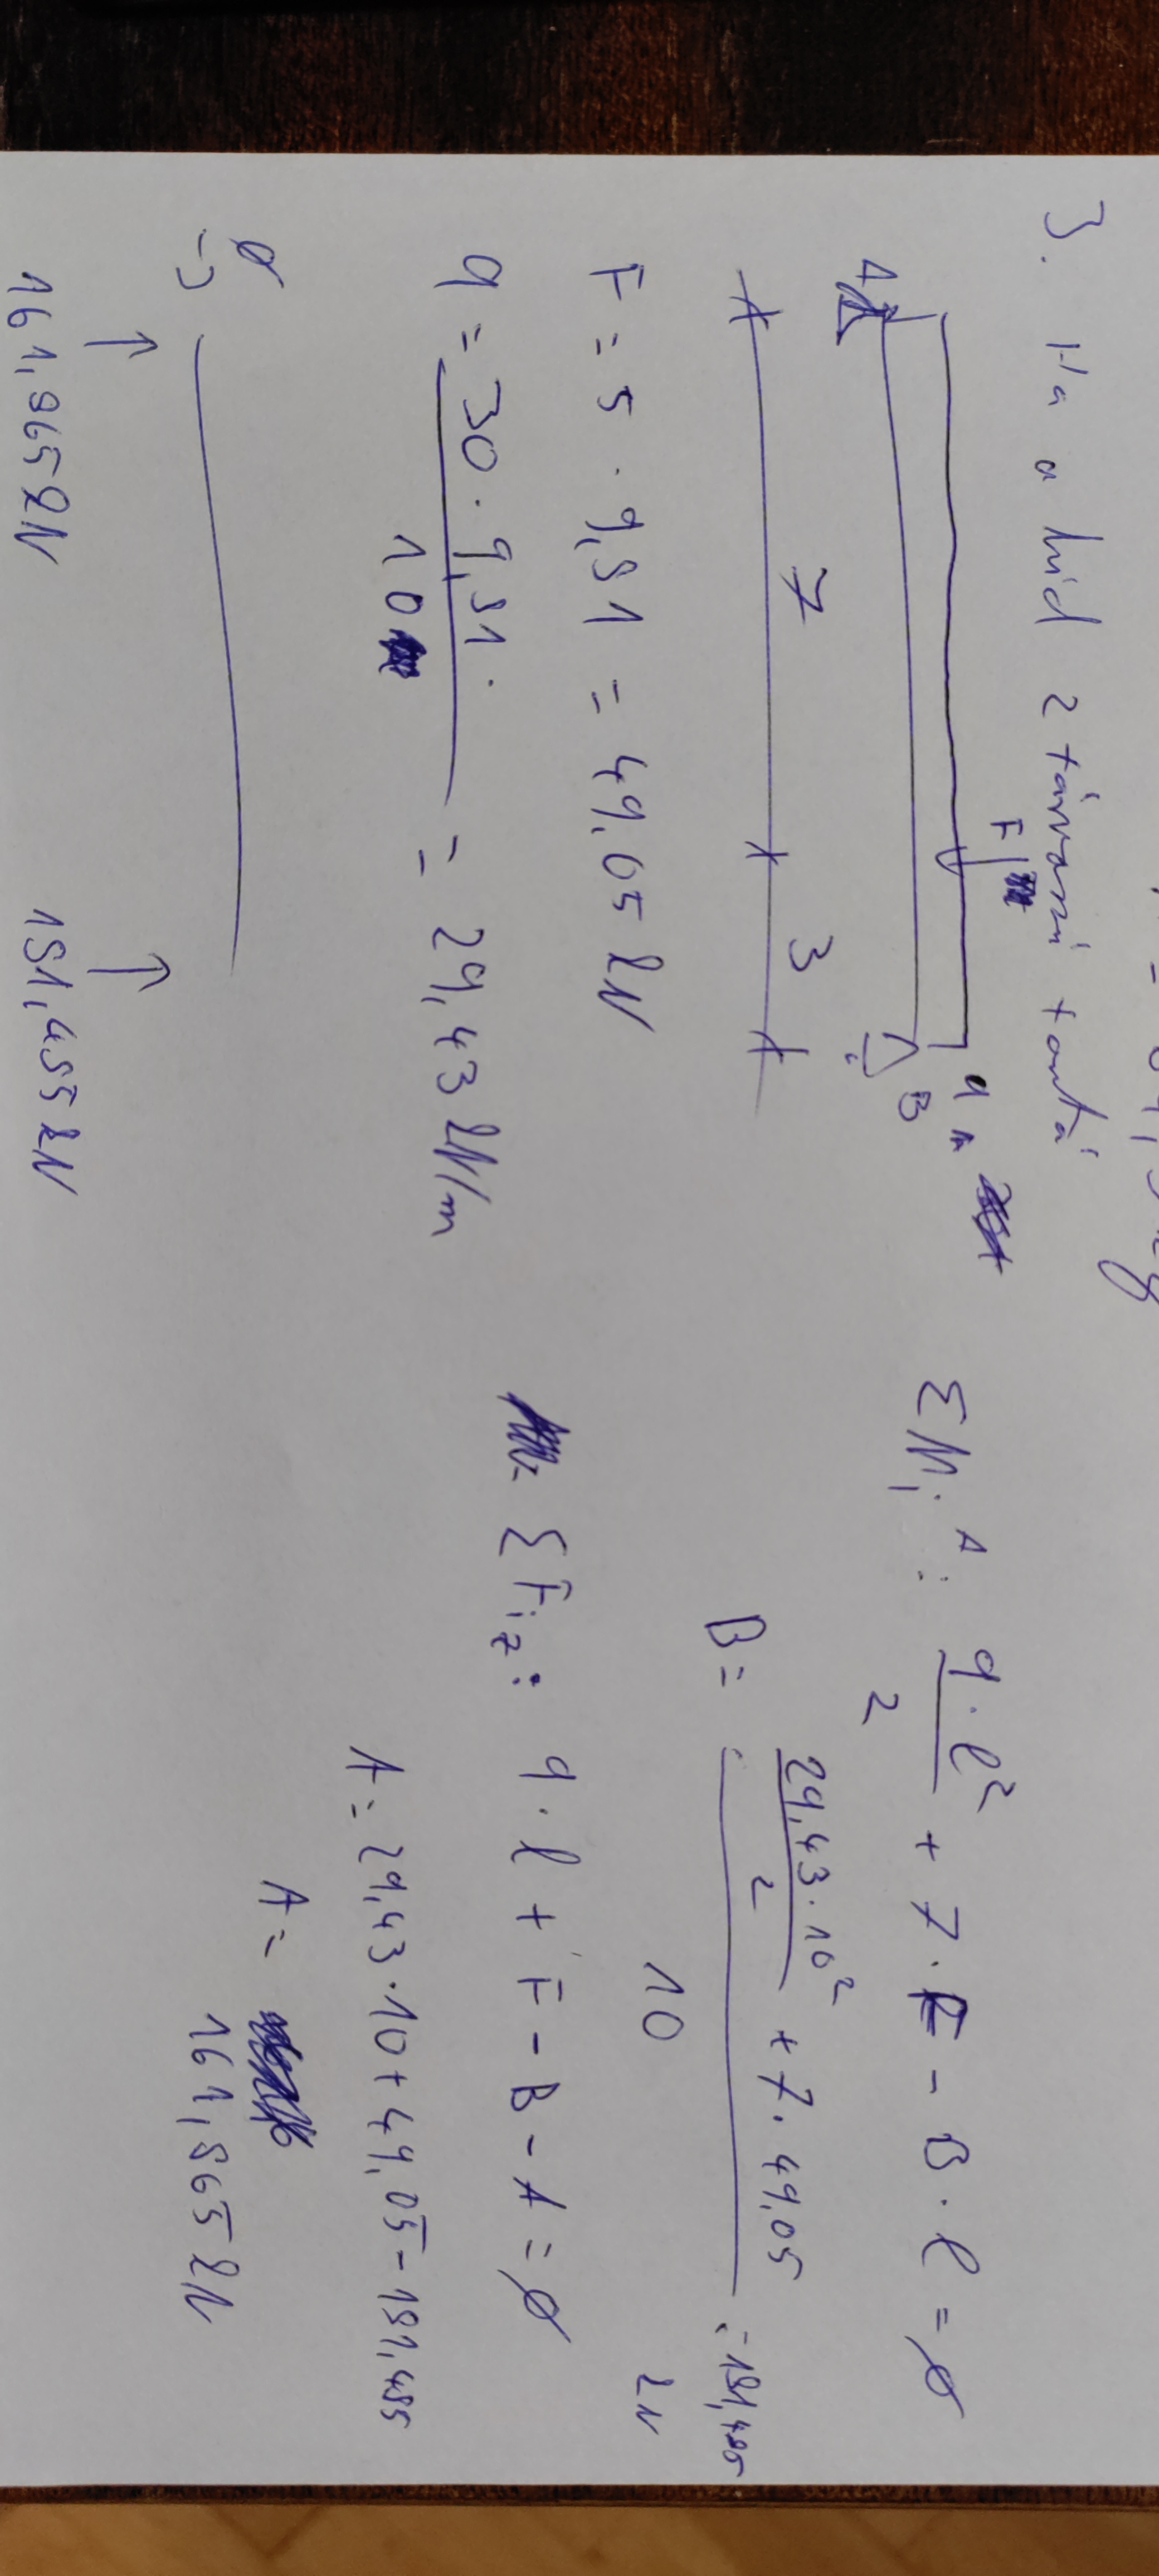 3. Ha a híd 2 támaszú tartó
F
q
A
B
7
3
F = 5 · 9,81 = 49,05 kN
q = 30 · 9,81 / 10 = 29,43 kN/m
∅
=>
↑ ↑
161,865 kN 181,485 kN
ΣMiA: q·l² / 2 + 7·F - B·l = ∅
B = (29,43·10² / 2 + 7·49,05) / 10 = 181,485 kN
ΣFiz: q·l + F - B - A = ∅
A = 29,43·10 + 49,05 - 181,485
A =
161,865 kN